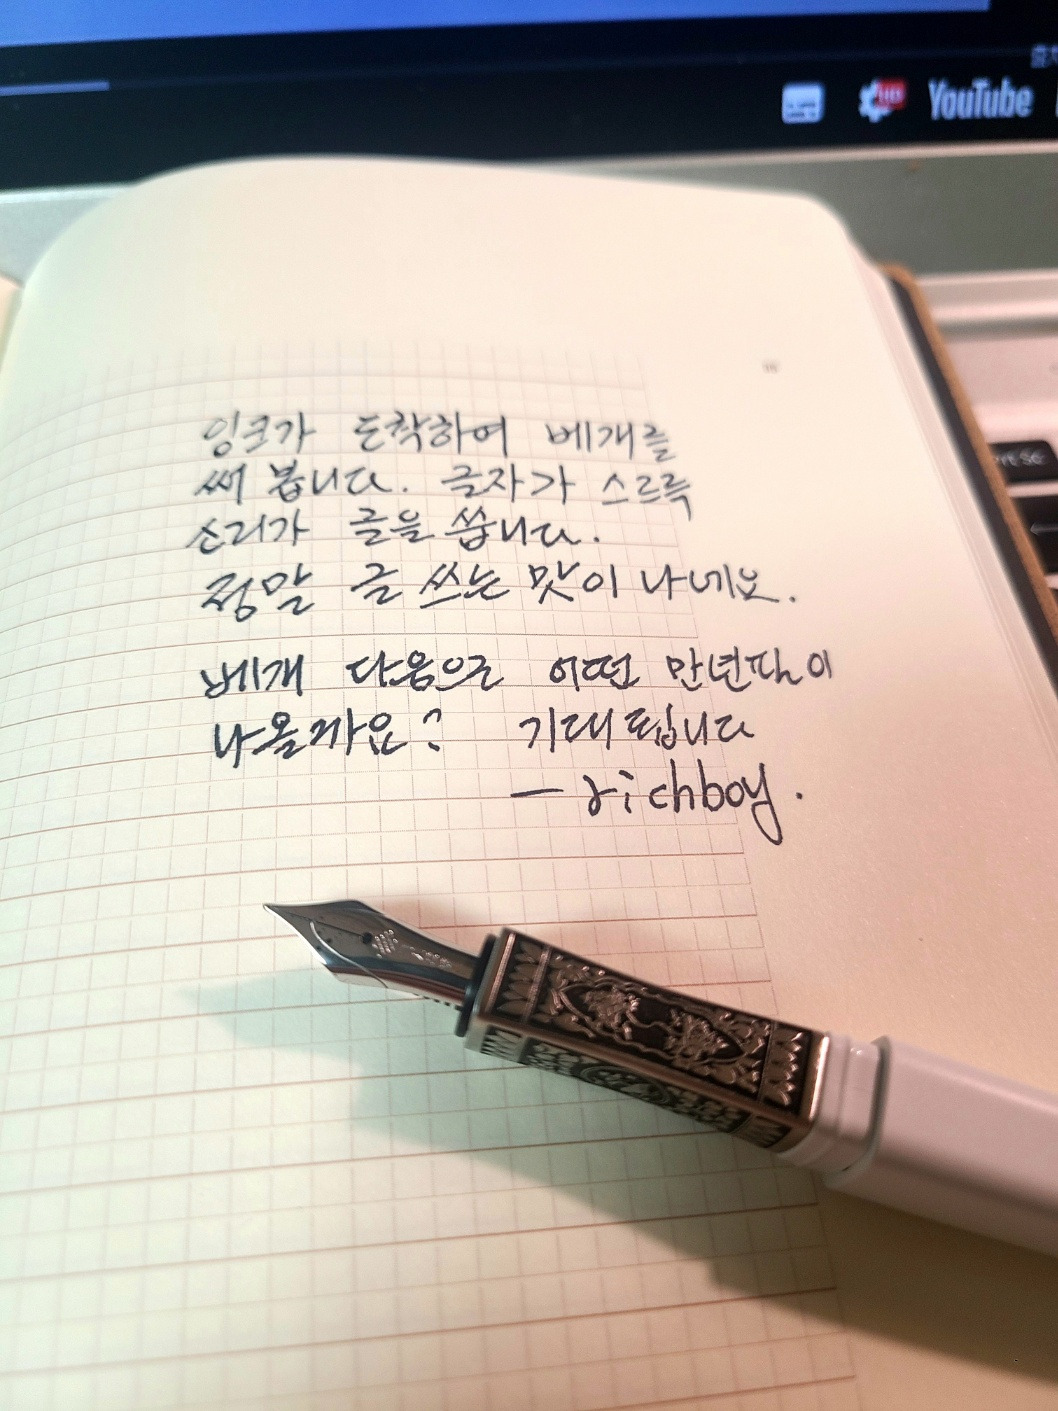 YouTube
잉크가 도착하여 베개를
써 봅니다. 글자가 스르륵
소리가 글을 씁니다.
정말 글 쓰는 맛이 나네요.
베개 다음으로 어떤 만년필이
나올까요? 기대됩니다
— richboy.